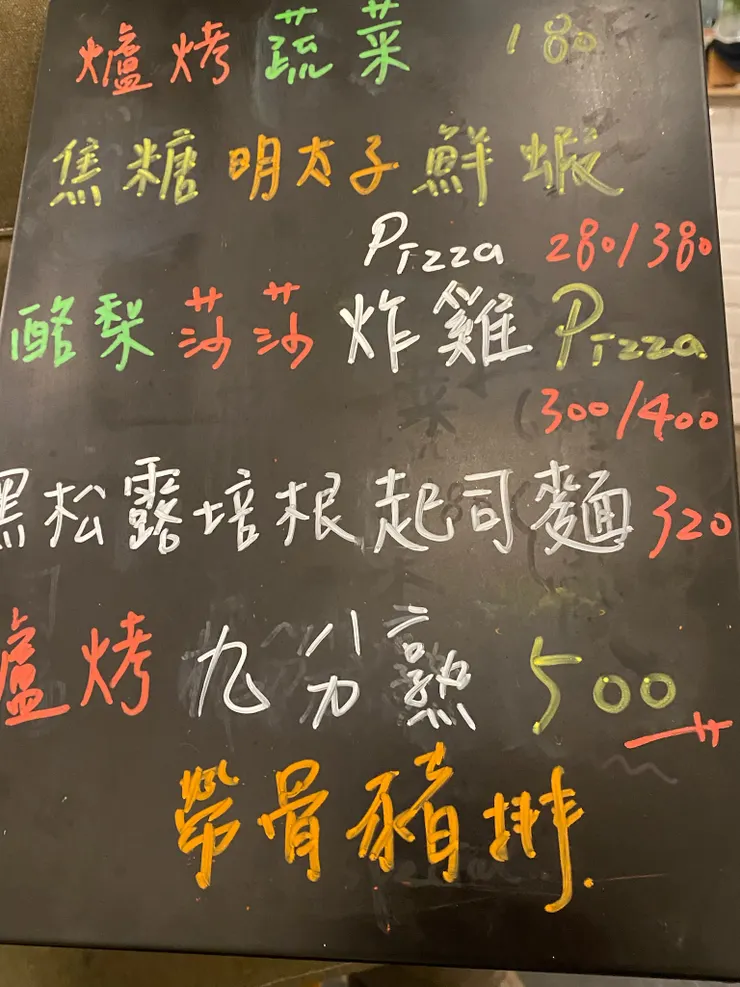 爐烤蔬菜 180
焦糖明太子鮮蝦
Pizza 280/380
酪梨莎莎炸雞Pizza
300/400
黑松露培根起司麵 320
爐烤九分熟 500
帶骨豬排.